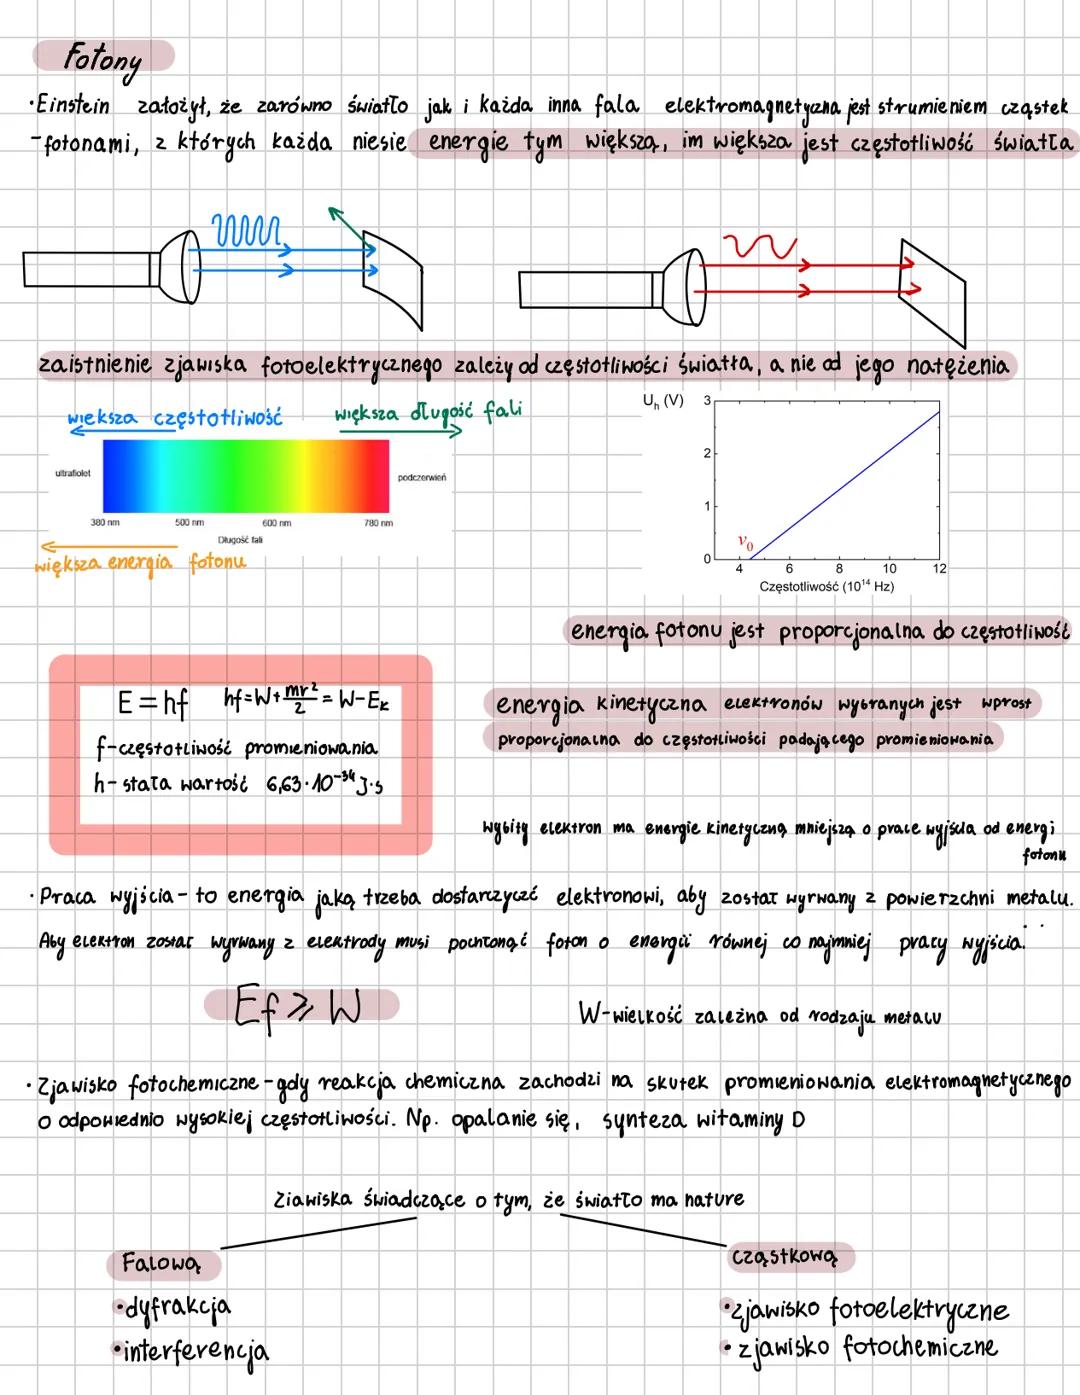 Fotony
•Einstein założył, że zarówno światło jak i każda inna fala elektromagnetyczna jest strumieniem cząstek
-fotonami, z których każda niesie energie tym większą, im większa jest częstotliwość światła
zaistnienie zjawiska fotoelektrycznego zależy od częstotliwości światła, a nie od jego natężenia
większa częstotliwość
większa długość fali
ultrafiolet
podczerwień
380 nm 500 nm 600 nm 780 nm
Długość fali
większa energia fotonu
Uh (V)
3
2
1
0
ν0
4 6 8 10 12
Częstotliwość (10¹⁴ Hz)
energia fotonu jest proporcjonalna do częstotliwość
E=hf hf=W+mv²/2=W-Ek
f-częstotliwość promieniowania
h-stała wartość 6,63·10⁻³⁴ J·s
energia kinetyczna elektronów wybranych jest wprost
proporcjonalna do częstotliwości padającego promieniowania
wybity elektron ma energie kinetyczną mniejszą o prace wyjścia od energi
fotonu
•Praca wyjścia- to energia jaką trzeba dostarczyczć elektronowi, aby został wyrwany z powierzchni metalu.
Aby elektron został wyrwany z elektrody musi pochłonąć foton o energii równej co najmniej pracy wyjścia.
Ef ⩾ W
W-wielkość zależna od rodzaju metalu
•Zjawisko fotochemiczne-gdy reakcja chemiczna zachodzi na skutek promieniowania elektromagnetycznego
o odpowiednio wysokiej częstotliwości. Np. opalanie się, synteza witaminy D
Zjawiska świadczące o tym, że światło ma nature
Falową
cząstkową
•dyfrakcja
•interferencja
•zjawisko fotoelektryczne
•zjawisko fotochemiczne